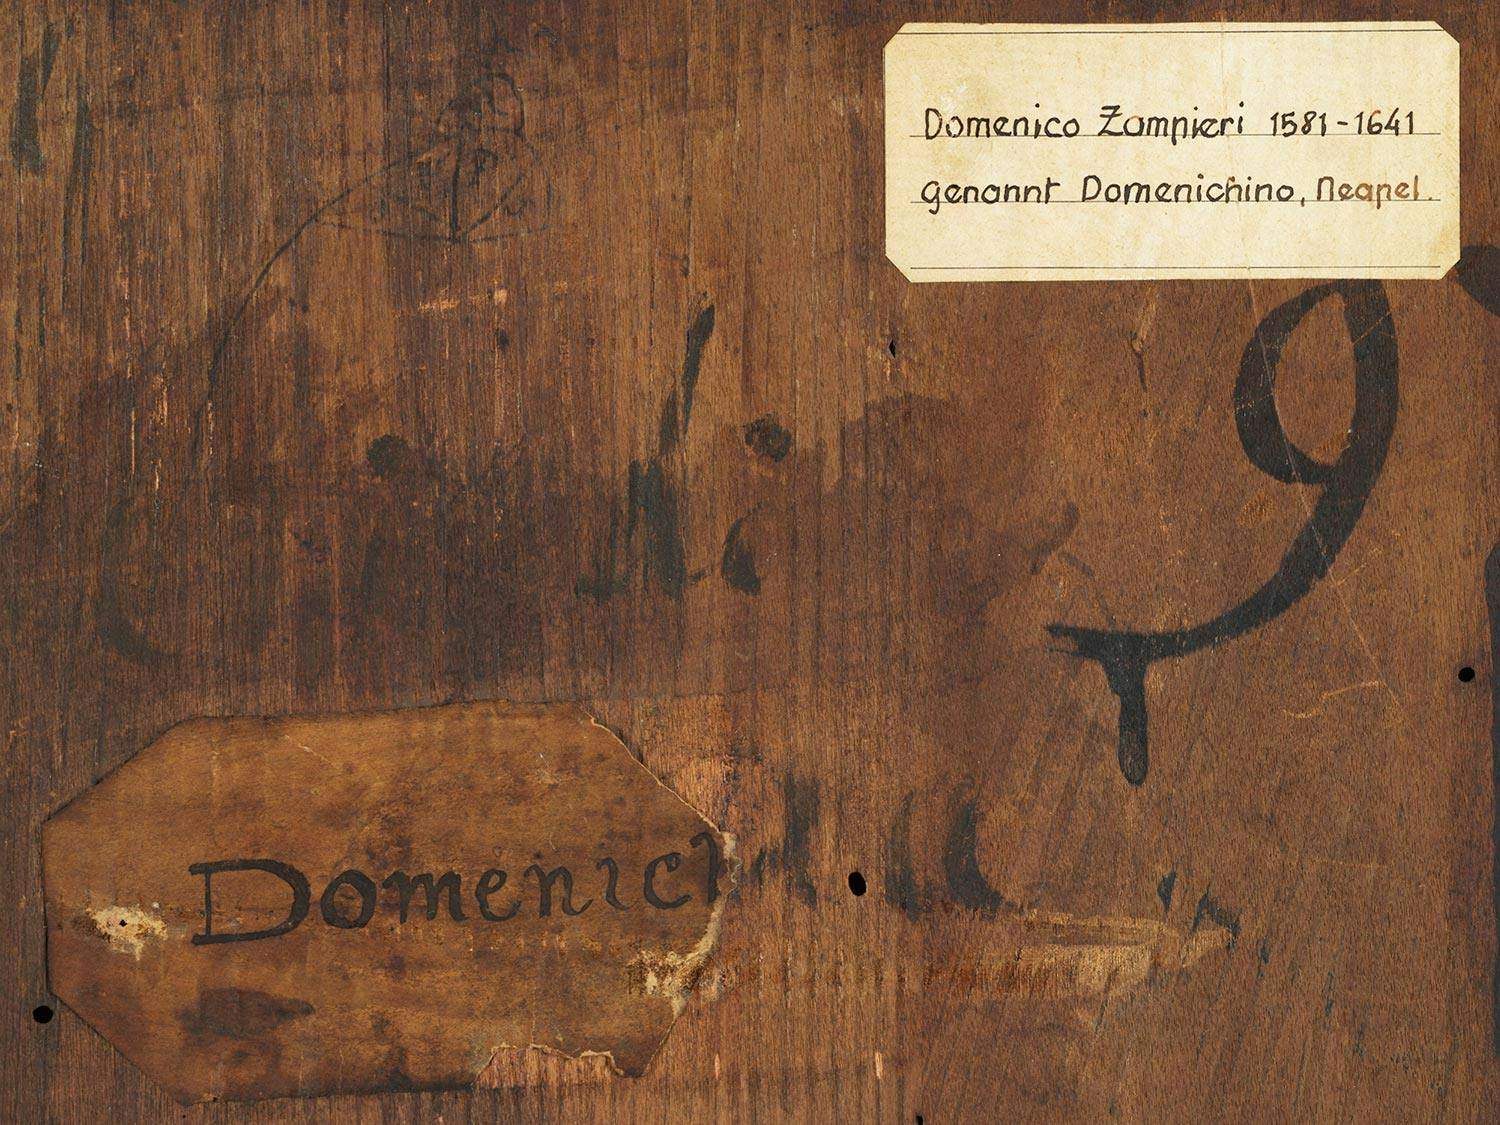 Domenico Zampieri 1581-1641
genannt Domenichino, Neapel.
9
Domenich